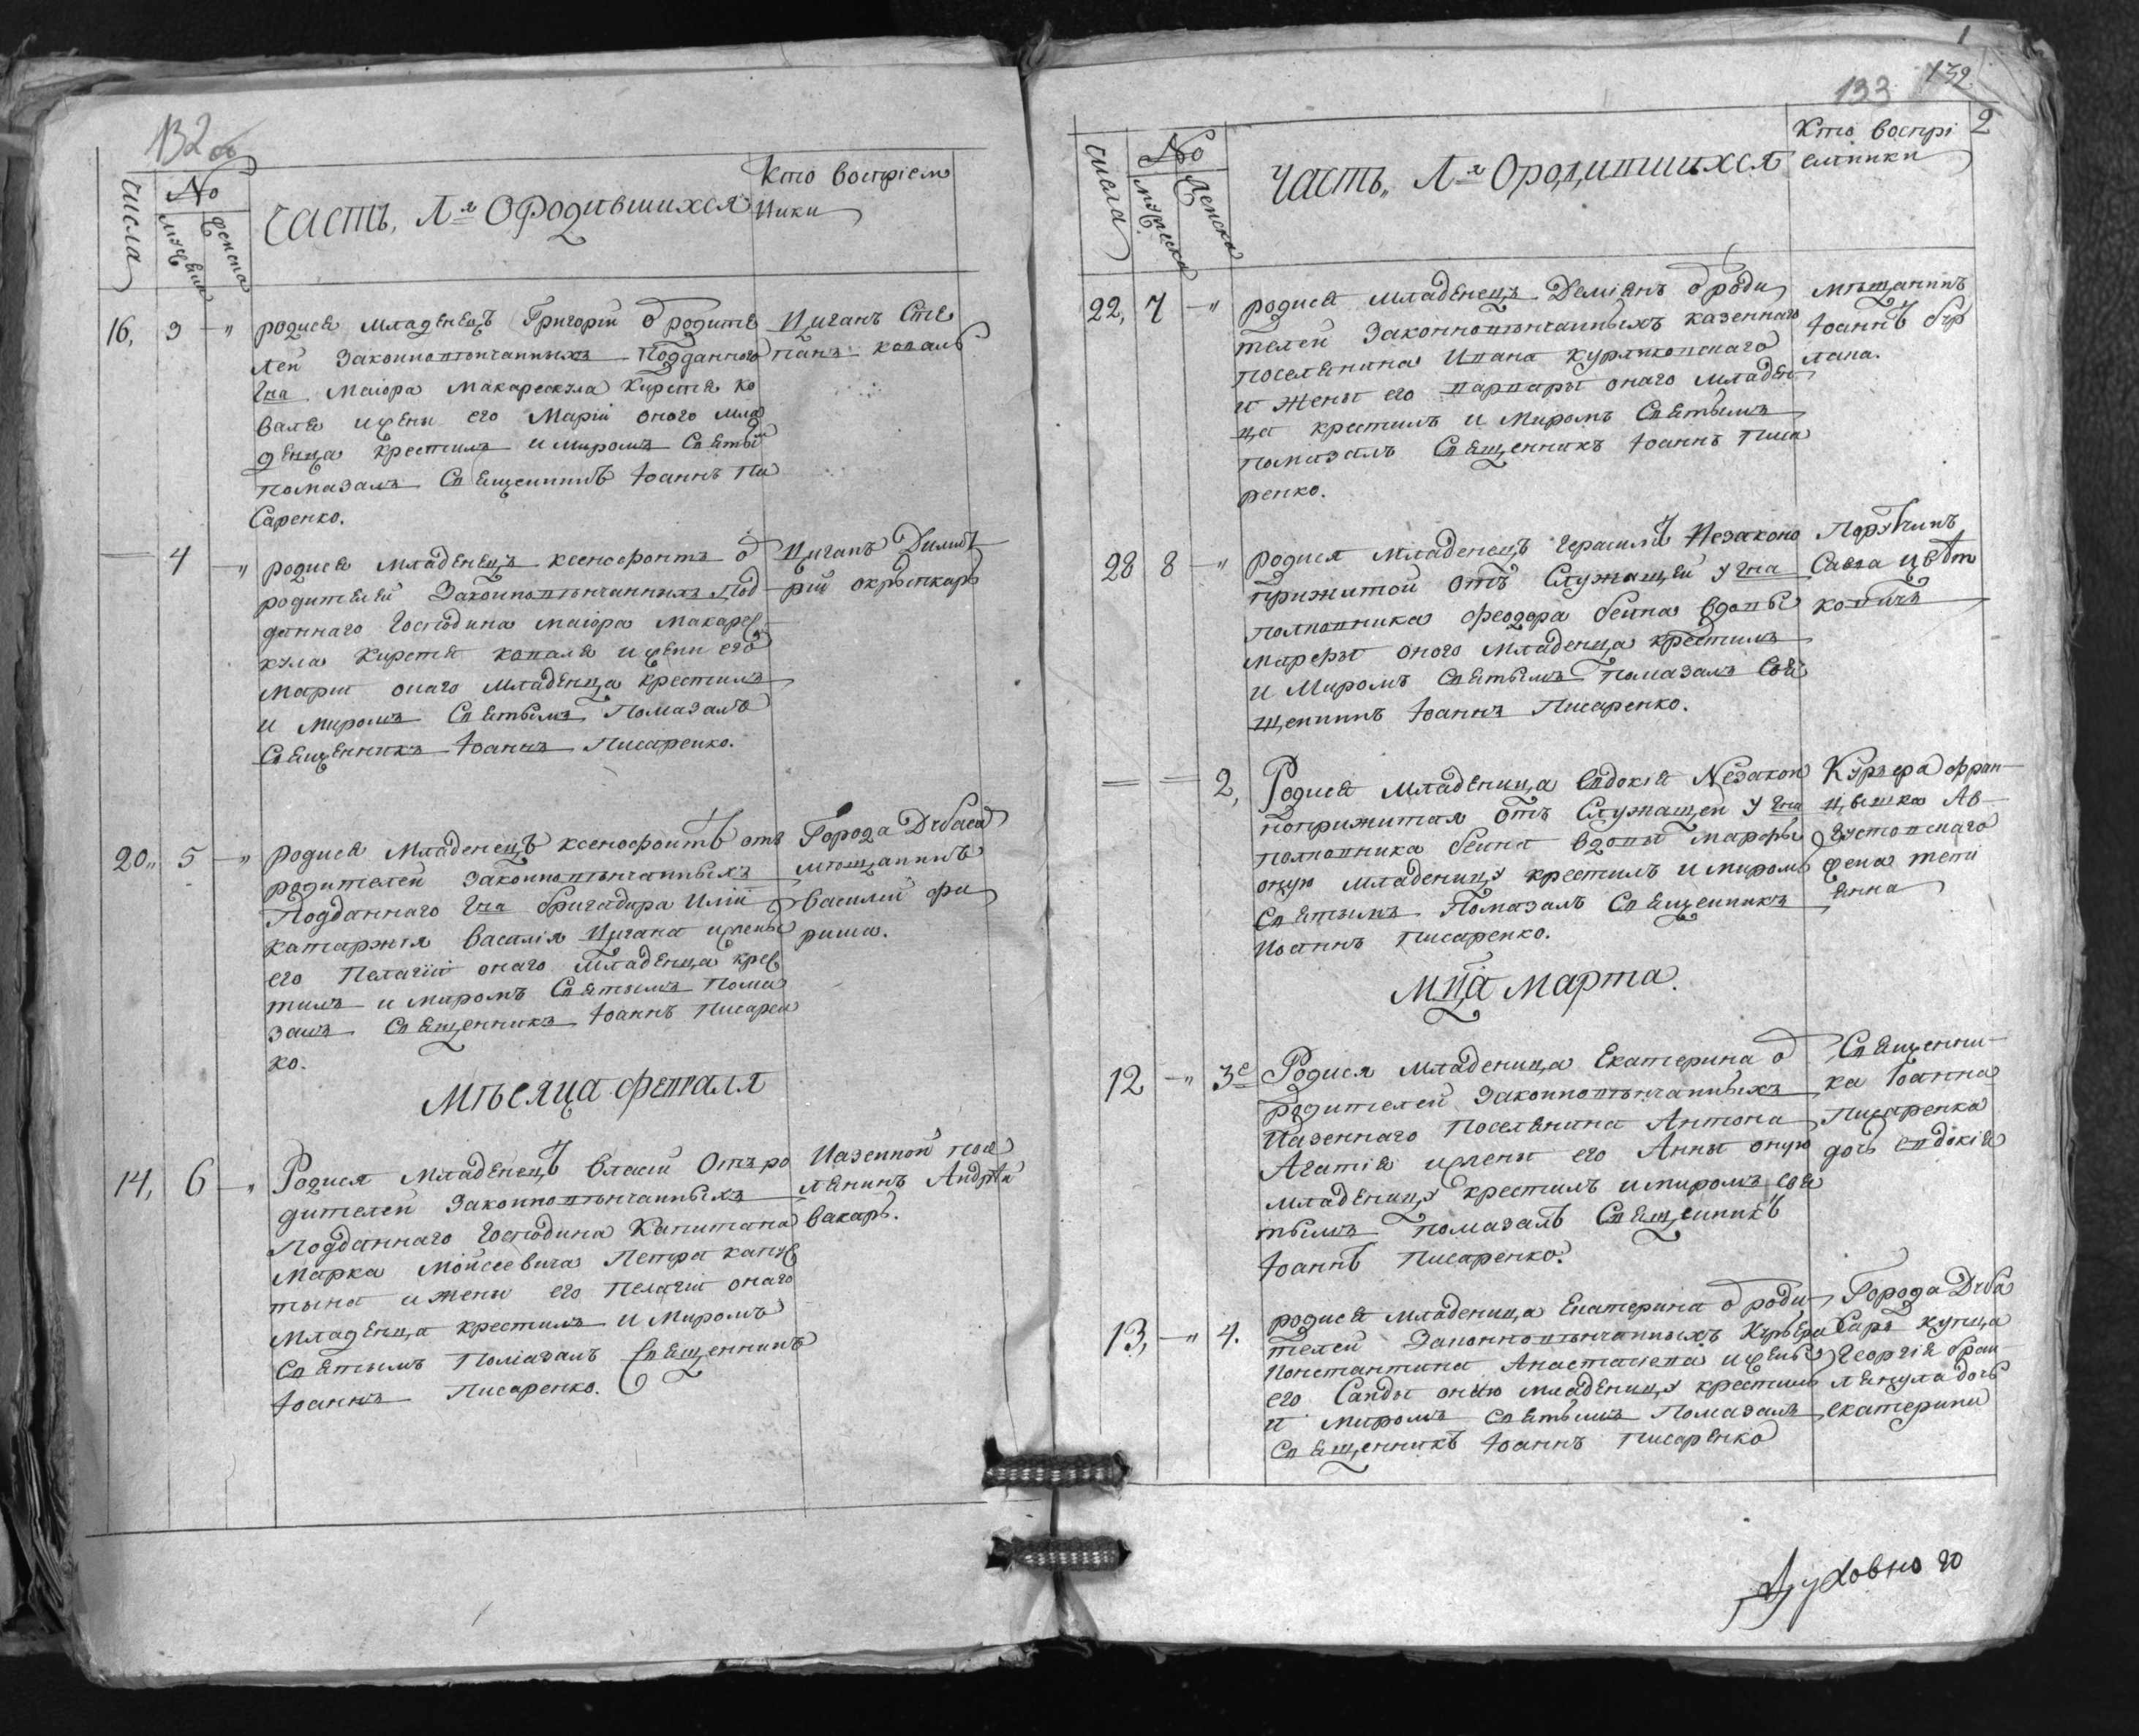 132 об
числа
No
мужеска
женска
Часть, 1я О Родившихся
Кто воспріем
ники
16, 3 — „ родися младенецъ Григорій о родите
лей законновѣнчанныхъ подданного
Гна маіора Макарескула Кирстя ко
валя и жены его Маріи оного мла
денца крестилъ и миромъ святы
помазалъ священникъ Іоаннъ Пи
саренко.
Циганъ Сте
панъ коваль
— 4 — „ родися младенецъ ксенофонтъ о
родителей законновѣнчанныхъ под
данного Господина маіора Макарес
кула Кирстя коваля и жены его
Маріи онаго младенца крестилъ
и миромъ святымъ помазалъ
священникъ Іоаннъ Писаренко.
Циганъ Димит
рій
20„ 5 — „ родися младенецъ ксенофонтъ отъ
родителей законновѣнчанныхъ
подданнаго Гна бригадира Иліи
катаржія Василія Цигана и жены
его Пелагіи онаго младенца крес
тилъ и миромъ святымъ пома
залъ священникъ Іоаннъ Писарен
ко.
Города Дубаса
мѣщанинъ
Василій фи
риша.
Мѣсяца февраля
14, 6 — „ Родися младенецъ Власій отъ ро
дителей законновѣнчанныхъ
подданнаго Господина Капитана
Марка Мойсеевича Петра капус
тына и жены его Пелагіи онаго
младенца крестилъ и миромъ
святымъ помазалъ священникъ
Іоаннъ Писаренко.
Казенной посе
лянинъ Андрѣй
вакаръ.
1
133 132
2
числа
No
мужеска
женска
Часть„ 1я О родившихся
Кто воспрі
емники
22, 7 — „ родися младенецъ Деміянъ о роди
телей законновѣнчанныхъ казеннаго
поселянина Ивана Курляковскаго
и жены его варвары онаго младен
ца крестилъ и миромъ святымъ
помазалъ священникъ Іоаннъ Писа
ренко.
мѣщанинъ
Іоаннъ бур
лака.
28 8 — „ родися младенецъ Герасимъ незаконо
прижитой отъ служащей у Гна
полковника феодора бекна вдовы
марфы оного младенца крестилъ
и миромъ святымъ помазалъ свя
щенникъ Іоаннъ Писаренко.
Порутчикъ
Савва цвѣт
ковичъ
= = 2, Родися младеница Евдокія незакон
ноприжитая отъ служащей у Гна
полковника бекна вдовы марфы
оную младеницу крестилъ и миромъ
святымъ помазалъ священникъ
Иоаннъ Писаренко.
Курьера фран
цышка Ав
густовскаго
жена тети
янна
Мца Марта.
12 — „ 3е Родися младеница Екатерина о
родителей законновѣнчанныхъ
казеннаго поселянина Антона
Агатія и жены его Анны оную
младеницу крестилъ и миромъ свя
тымъ помазалъ священникъ
Іоаннъ Писаренко.
Священни
ка Іоанна
Писаренка
дочь евдокія
13, — „ 4. родися младеница Екатерина о роди
телей законновѣнчанныхъ Курьера
Константина Анастасіева и жены
его Санды оную младеницу крестилъ
и миромъ святымъ помазалъ
священникъ Іоаннъ Писаренко
Города Дуба
саръ купца
Георгія
дочь
екатерина
Духовного